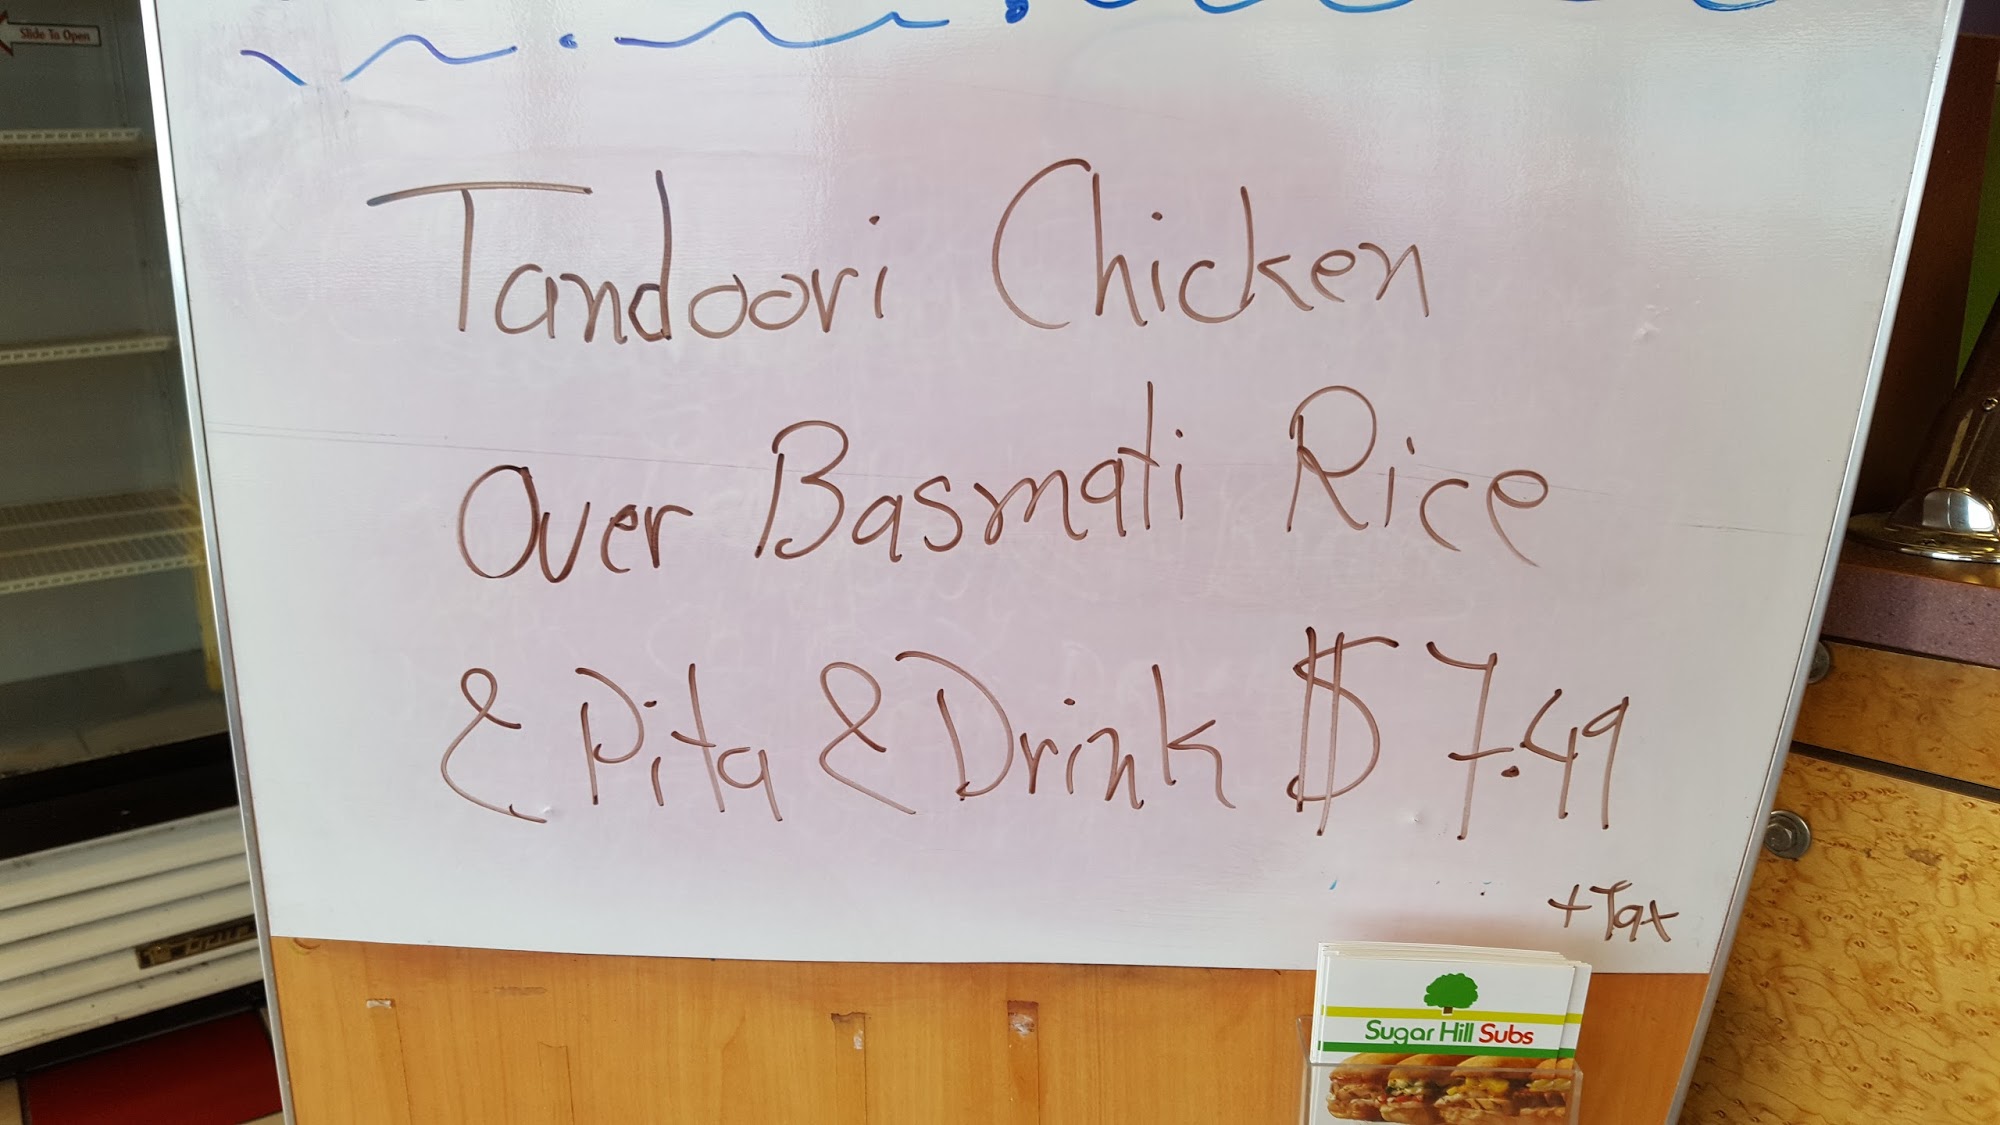 Slide To Open
Tandoori Chicken
Over Basmati Rice
& Pita & Drink $ 7.49
+ Tax
Sugar Hill Subs